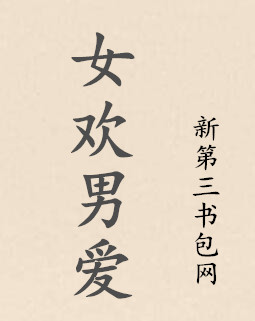 女欢男爱
新第三书包网